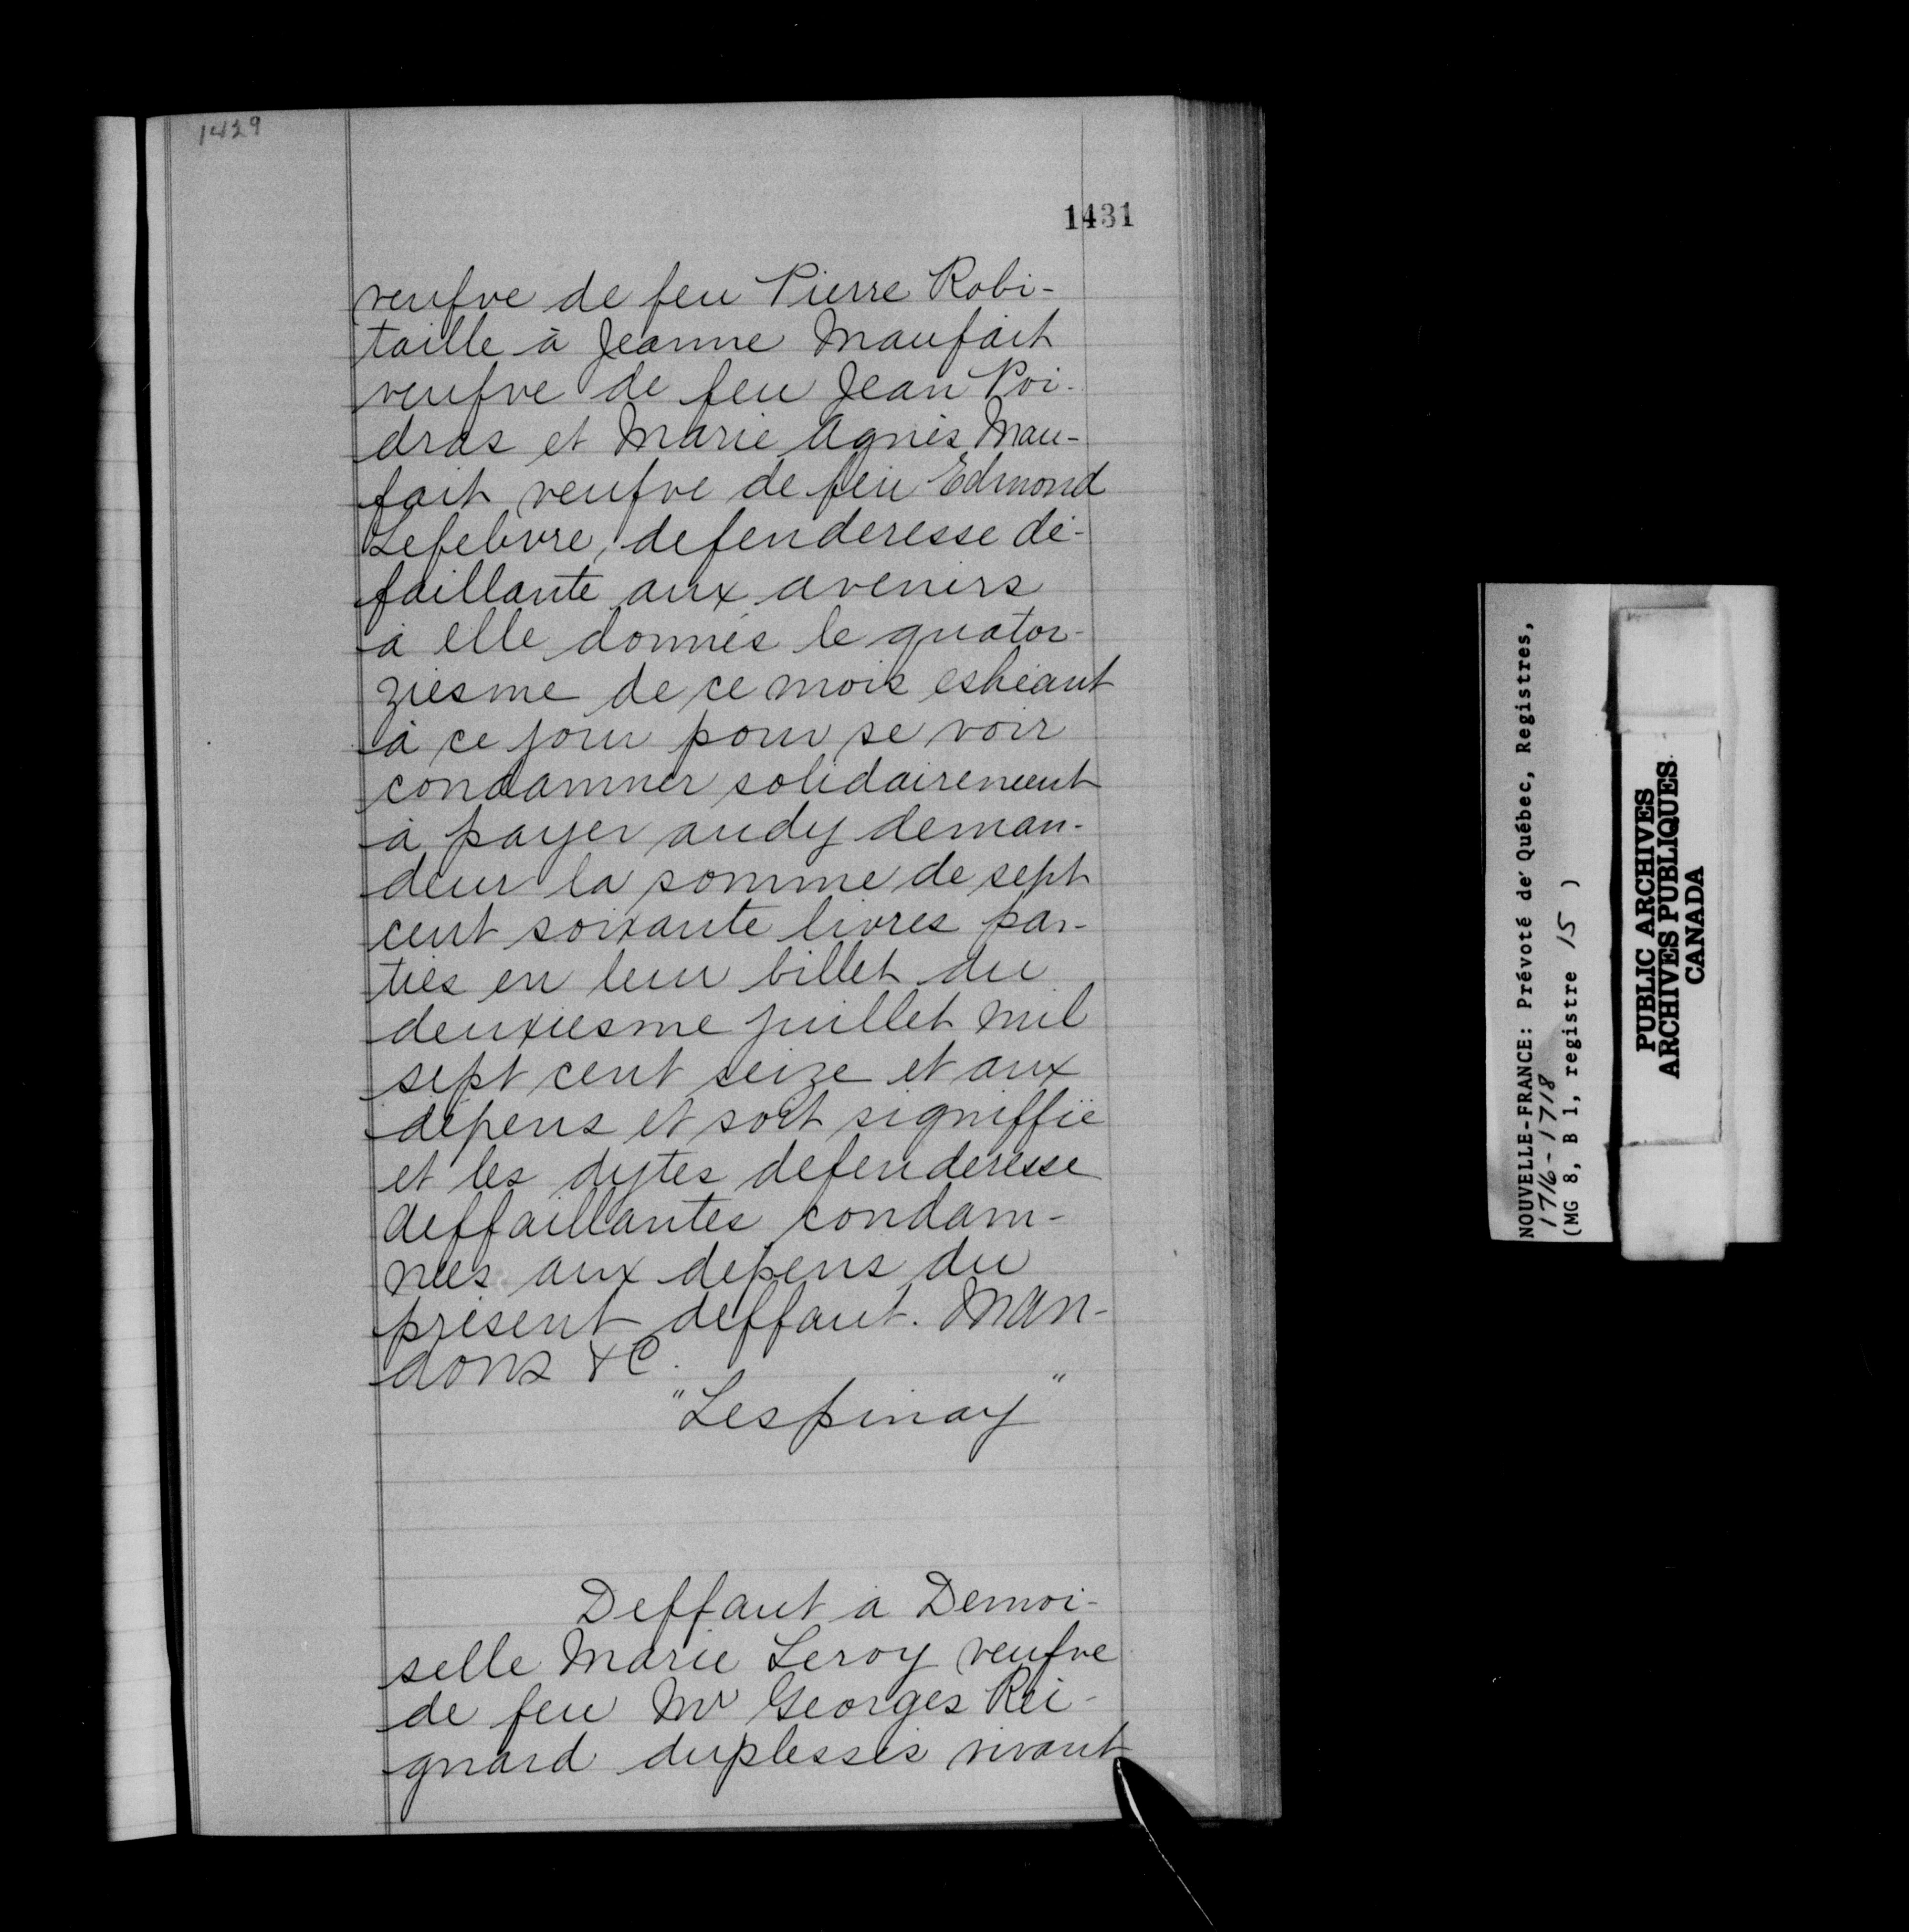 1429
1431
veufve de feu Pierre Robi-
taille à Jeanne Maufait
veufve de feu Jean Poi-
dras et Marie Agnès Mau-
fait veufve de feu Edmond
Lefebvre, defenderesse dé-
faillante aux avenirs
à elle donnés le quator-
ziesme de ce mois eshéant
à ce jour pour se voir
condamner solidairement
à payer audy deman-
deur la somme de sept
cent soixante livres par-
ties en leur billet du
deuxiesme juillet mil
sept cent seize et aux
dépens et soit signiffié
et les dytes defenderesse
deffaillantes condam-
nées aux depens du
présent deffaut. Man-
dons &c.
"Lespinay"
Deffaut à Demoi-
selle Marie Leroy veufve
de feu Mr Georges Rei-
gnard duplessis vivant
NOUVELLE-FRANCE: Prévoté de Québec, Registres,
1716-1718
(MG 8, B 1, registre 15 )
PUBLIC ARCHIVES
ARCHIVES PUBLIQUES
CANADA